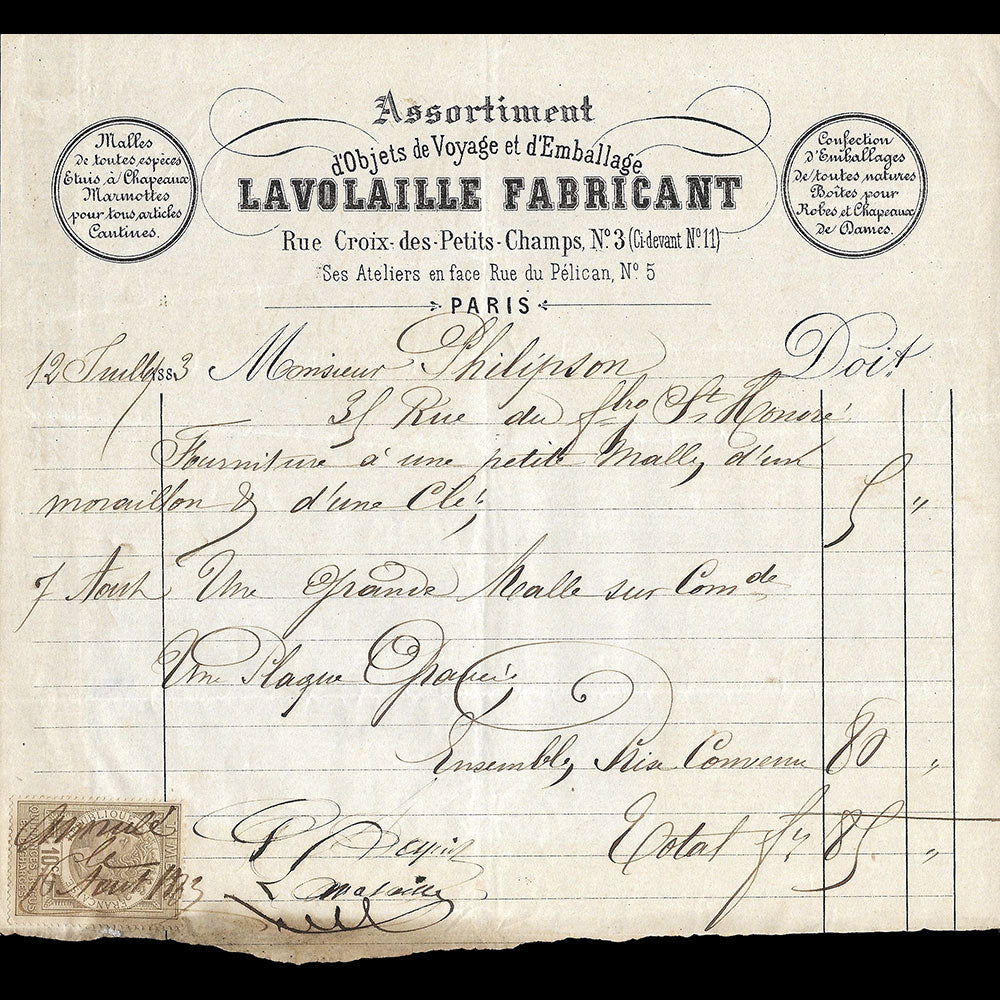 Assortiment
d'Objets de Voyage et d'Emballage
LAVOLAILLE FABRICANT
Rue Croix-des-Petits-Champs, N° 3 (Ci-devant N° 11)
Ses Ateliers en face Rue du Pélican, N° 5
PARIS
Malles
de toutes espèces
Etuis à Chapeaux
Marmottes
pour tous articles
Cantines.
Confection
d'Emballages
de toutes natures
Boîtes pour
Robes et Chapeaux
de Dames.
12 Juillet 1883 Monsieur Philipson Doit
35 Rue du fbro St Honoré
Fourniture à une petite Malle, d'un
moraillon & d'une Clé; 5 "
7 Aout Une Grande Malle sur Comde
Une Plaque Gravée
Ensemble, Prix Convenu 80 "
Total fs 85 "
Pr Acquit
Lavolaille
RÉPUBLIQUE
FRANÇAISE
QUITTANCES
10c
Annulé
le
16 Aout 1883